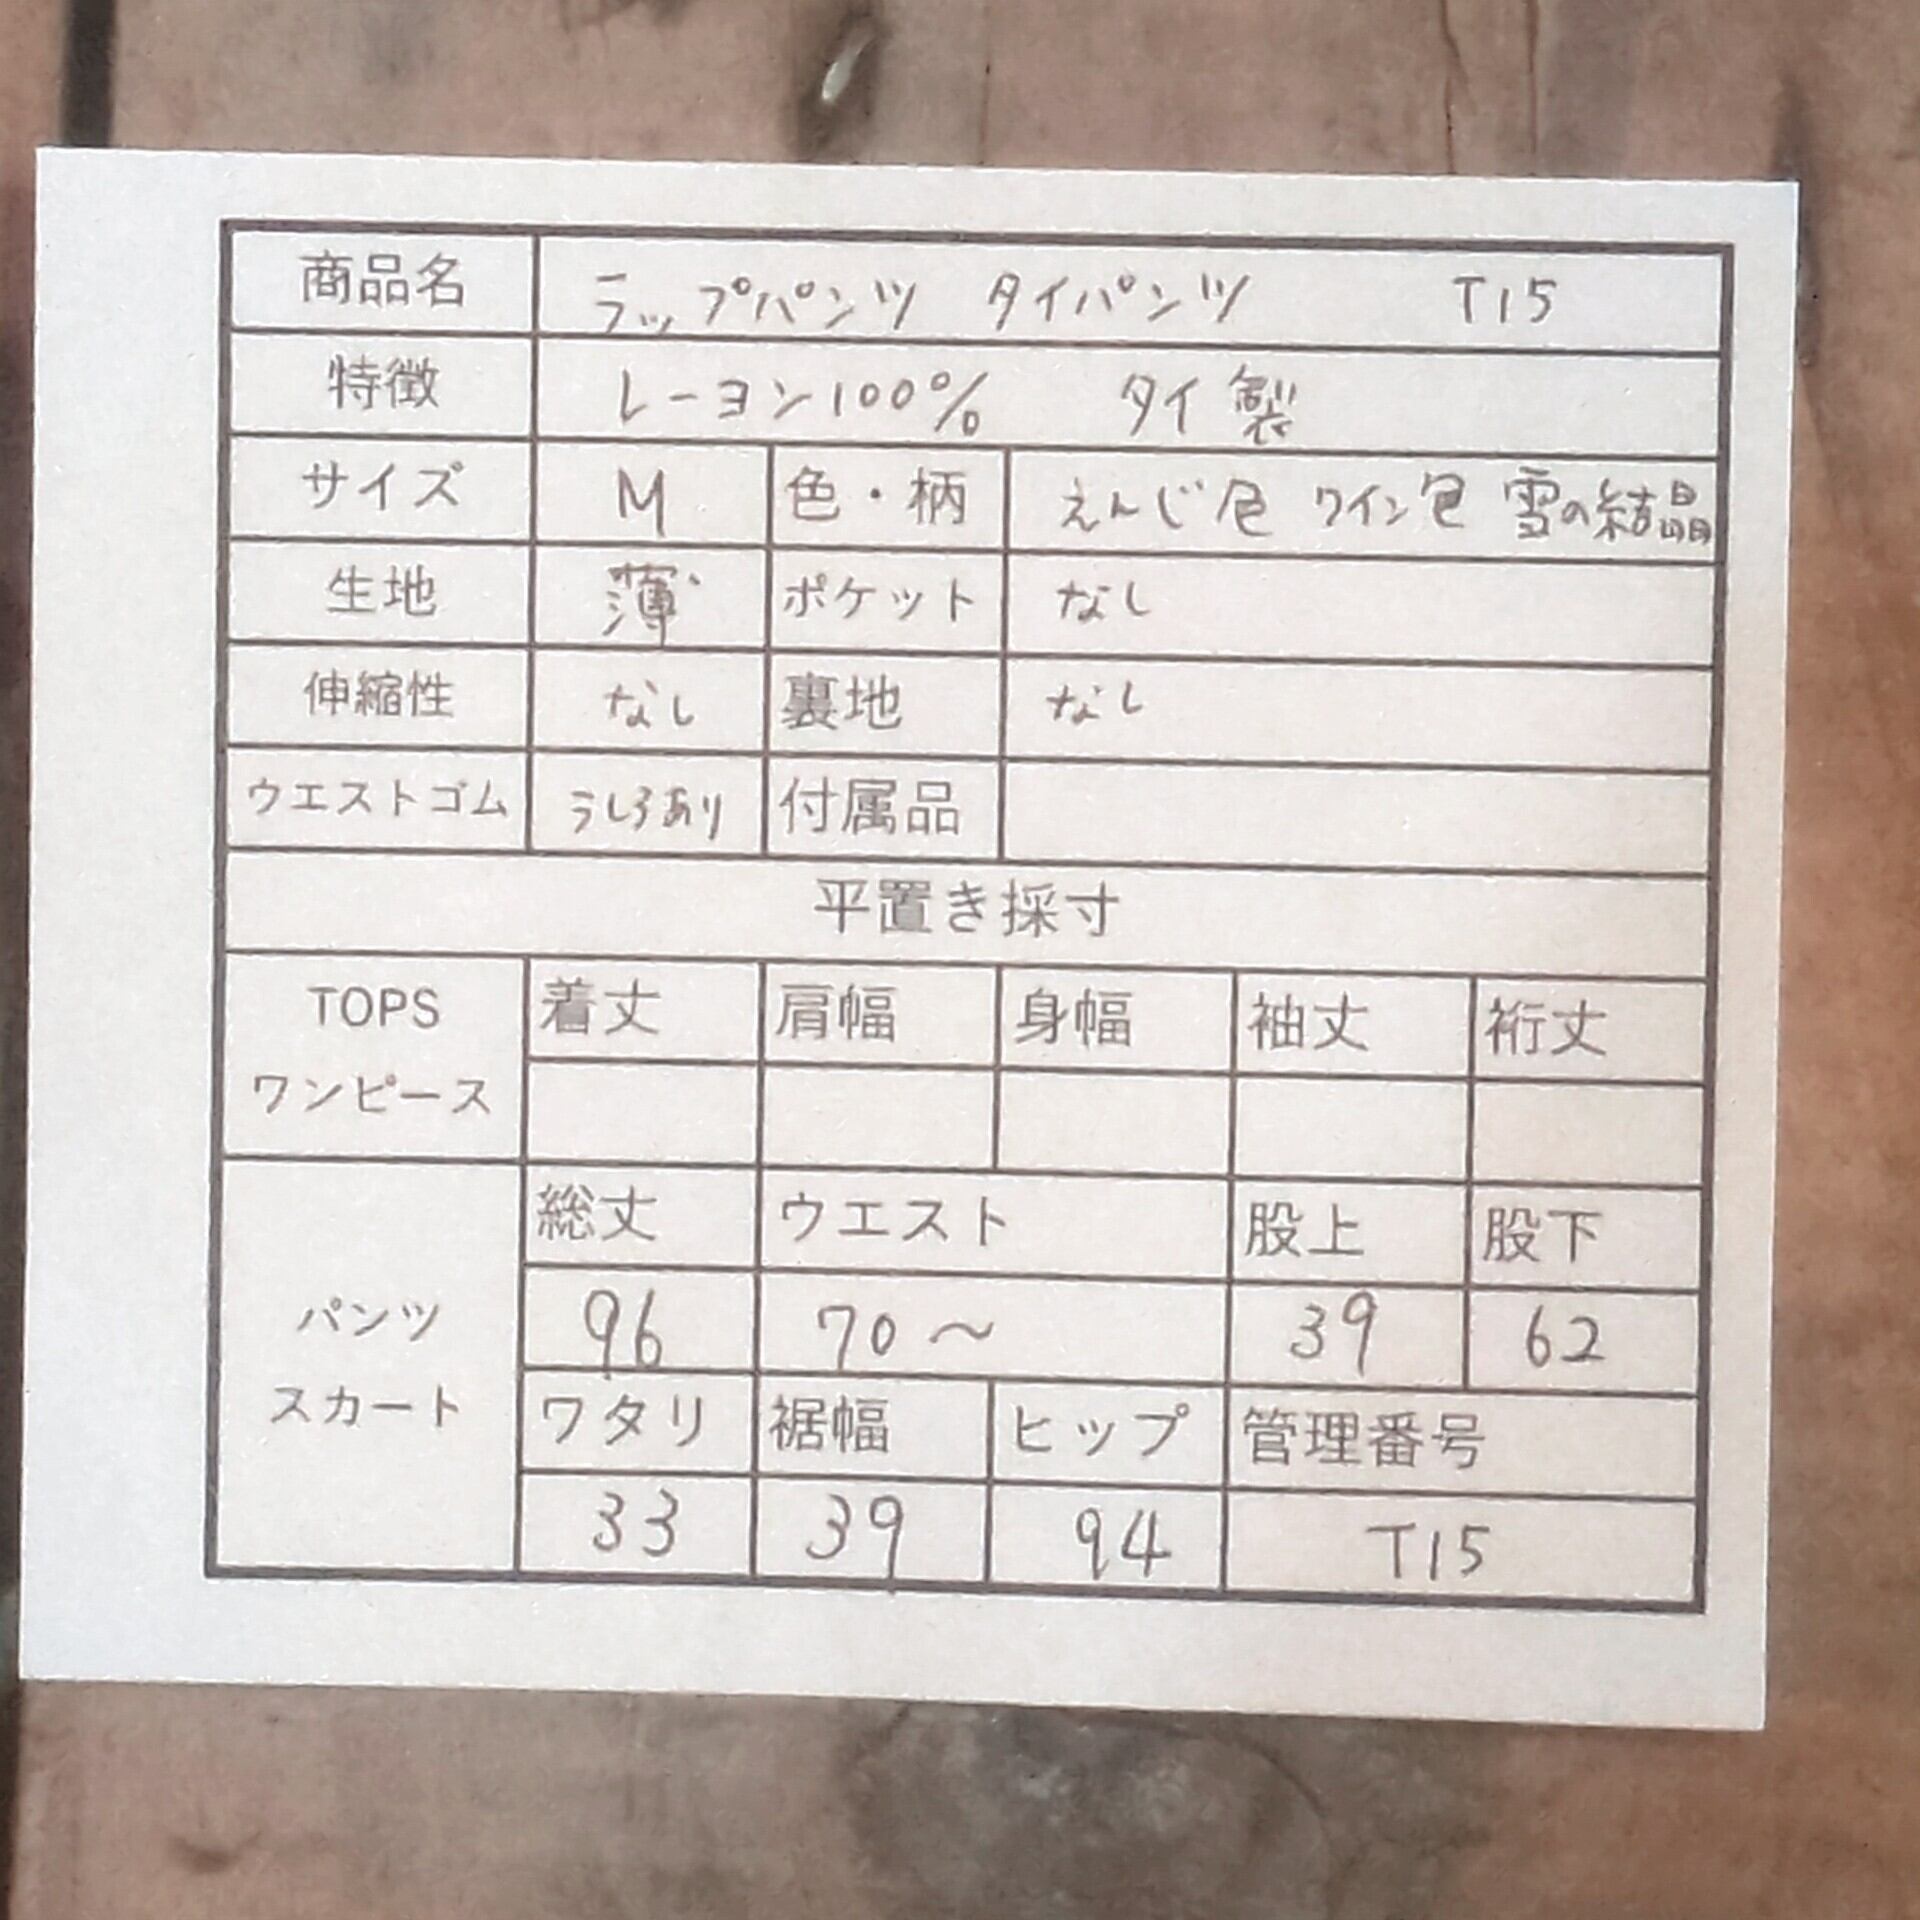 商品名 ラップパンツ タイパンツ T15
特徴 レーヨン100% タイ製
サイズ M 色・柄 えんじ色 ワイン色 雪の結晶
生地 薄 ポケット なし
伸縮性 なし 裏地 なし
ウエストゴム うしろあり 付属品
平置き採寸
TOPS ワンピース 着丈 肩幅 身幅 袖丈 裄丈
パンツ スカート 総丈 ウエスト 股上 股下
96 70～ 39 62
ワタリ 裾幅 ヒップ 管理番号
33 39 94 T15